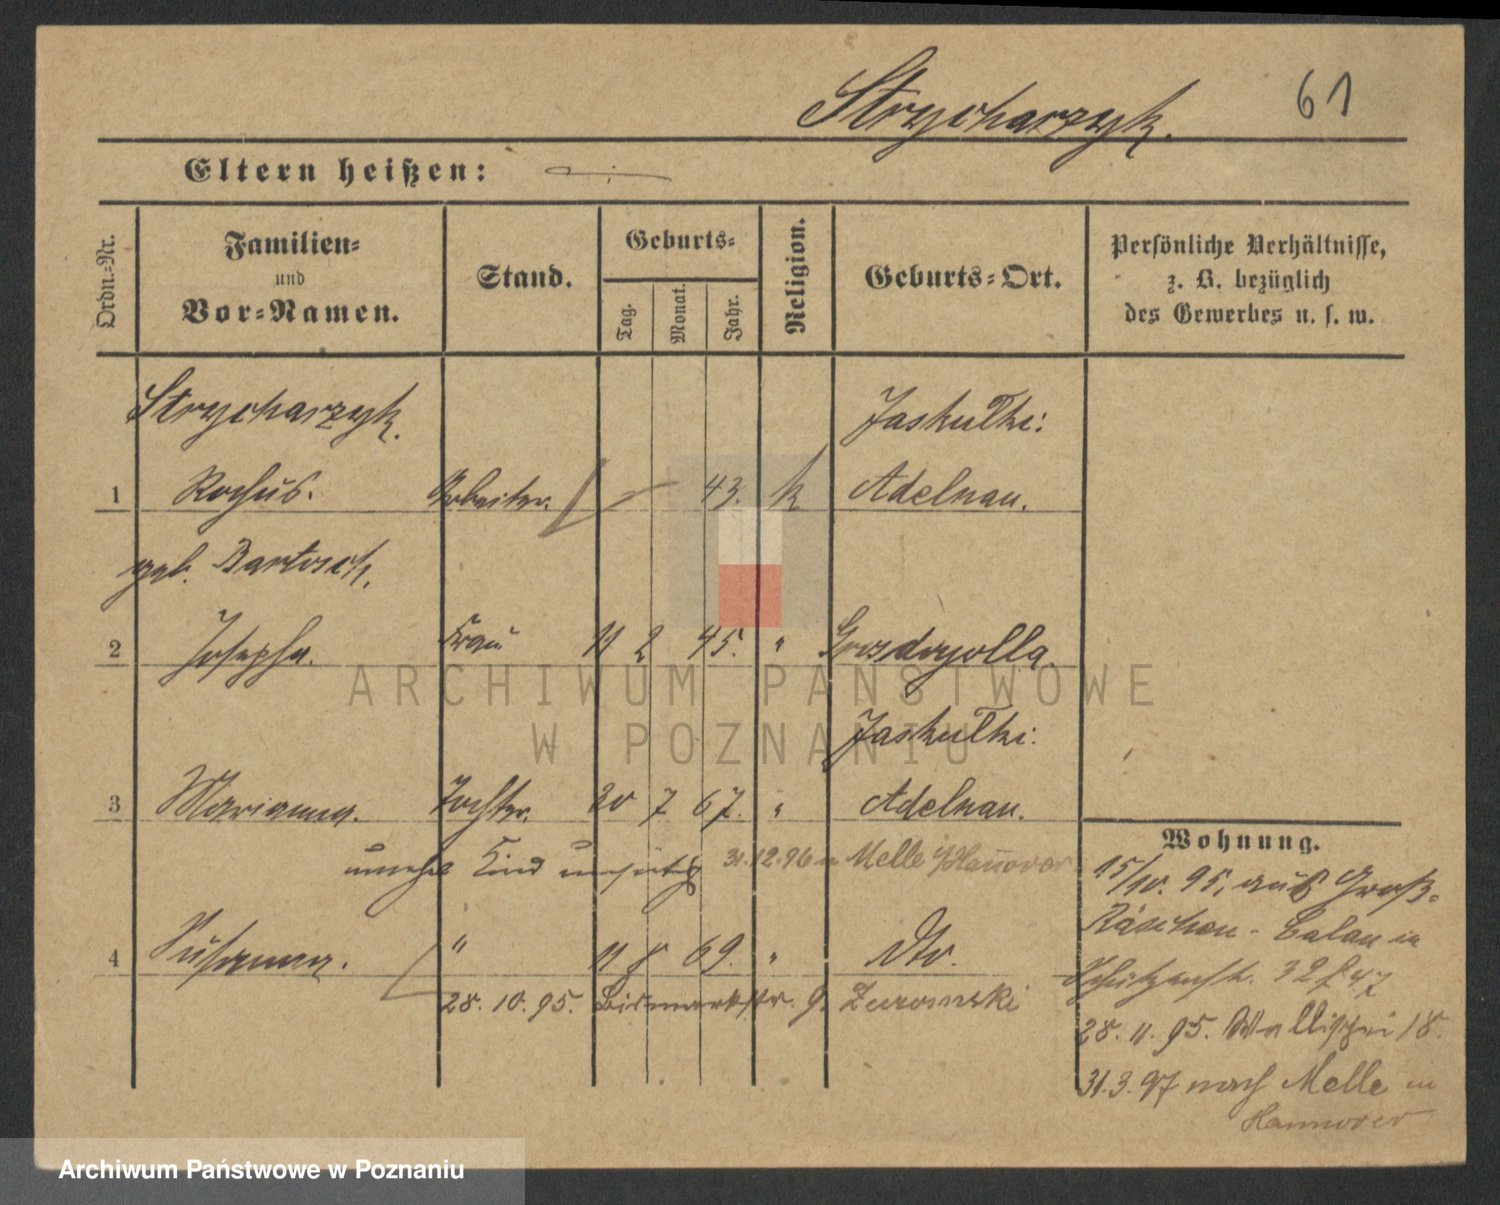 Strycharzyk.
61
Eltern heißen: —
Ordn.-Nr.
Familien-
und
Vor-Namen.
Stand.
Geburts-
Tag.
Monat.
Jahr.
Religion.
Geburts-Ort.
Persönliche Verhältnisse,
z. B. bezüglich
des Gewerbes u. s. w.
Strycharzyk.
Jaskulki:
1 Rochus. Arbeiter. — 43. k Adelnau.
geb. Bartosch.
2 Josepha. Frau 11 2 45. "
ARCHIWUM PAŃSTWOWE
W POZNANIU
Jaskulki:
3 Marianna. Tochter. 20 7 67. " Adelnau.
Wohnung.
unehel Kind 31.12.96 n Melle i/Hannover
15/10. 95, aus Groß-
Räschen - Calau in
4 Susanna. " 11 8 69. " Dto.
Schützenstr. 32
28. 10. 95. Bismarckstr. 9.
28. 11. 95. Wallischei 18.
31.3.97 nach Melle in
Hannover
Archiwum Państwowe w Poznaniu